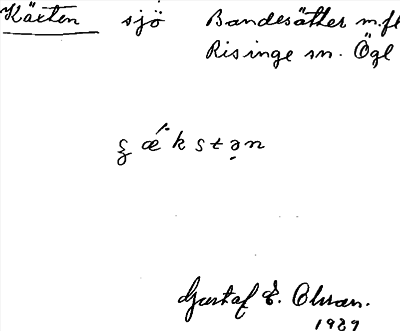 Käxten sjö Bandesätter m.fl
Risinge sn. Ögl
Gustaf E. Olsson.
1929